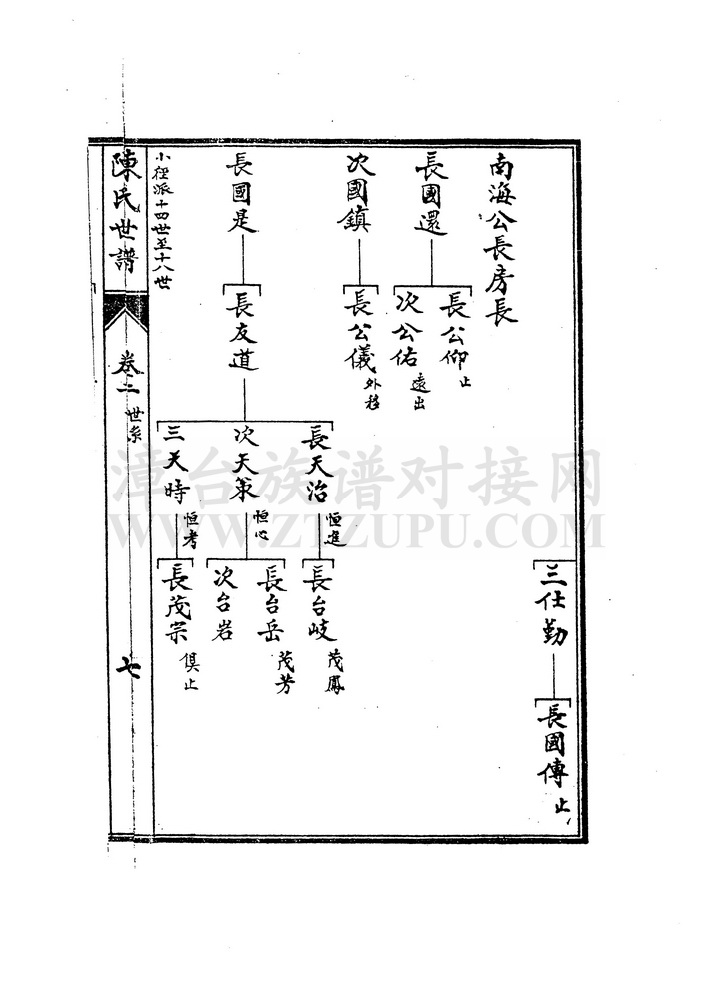 三仕勤
長國傳 止
南海公長房長
長國還
長公仰 止
次公佑 遠出
次國鎮
長公儀 外移
長國是
長友道
長天治 恒進
長台岐 茂鳳
次天策 恒心
長台岳 茂芳
次台岩
三天時 恒考
長茂宗 俱止
小徑派十四世至十八世
陳氏世譜
卷二 世系
七
漳台族谱对接网
WWW.ZTZUPU.COM